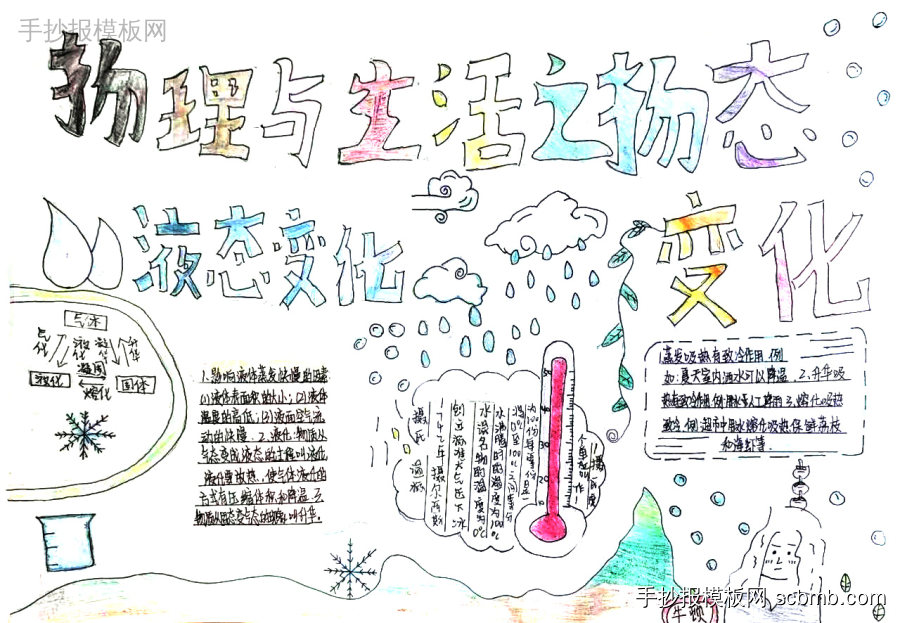 手抄报模板网
物理与生活之物态
变化
液态变化
气体
升华
凝固
熔化
固体
液化
1.影响液体蒸发快慢的因素
(1)液体表面积的大小;(2)液体
温度的高低;(3)液面空气流
动的快慢.2.液化:物质从
气态变成液态的过程叫液化
液化要放热.使气体液化的
方式有压缩体积和降温.3.
摄氏温标
一七四二年摄尔西斯
创立标准大气压下冰
水混合物的温度为0℃
水沸腾时的温度为100℃
0℃至100℃之间等分
为100份每等份是一
个单位叫作
摄氏度
蒸发吸热有致冷作用.例
如:夏天室内洒水可以降温.2.升华吸
热有致冷作用.例:用干冰人工降雨.3.熔化吸热
致冷.例:超市中用冰熔化吸热保鲜荔枝
和海虾等.
(牛顿)
手抄报模板网 scbmb.com